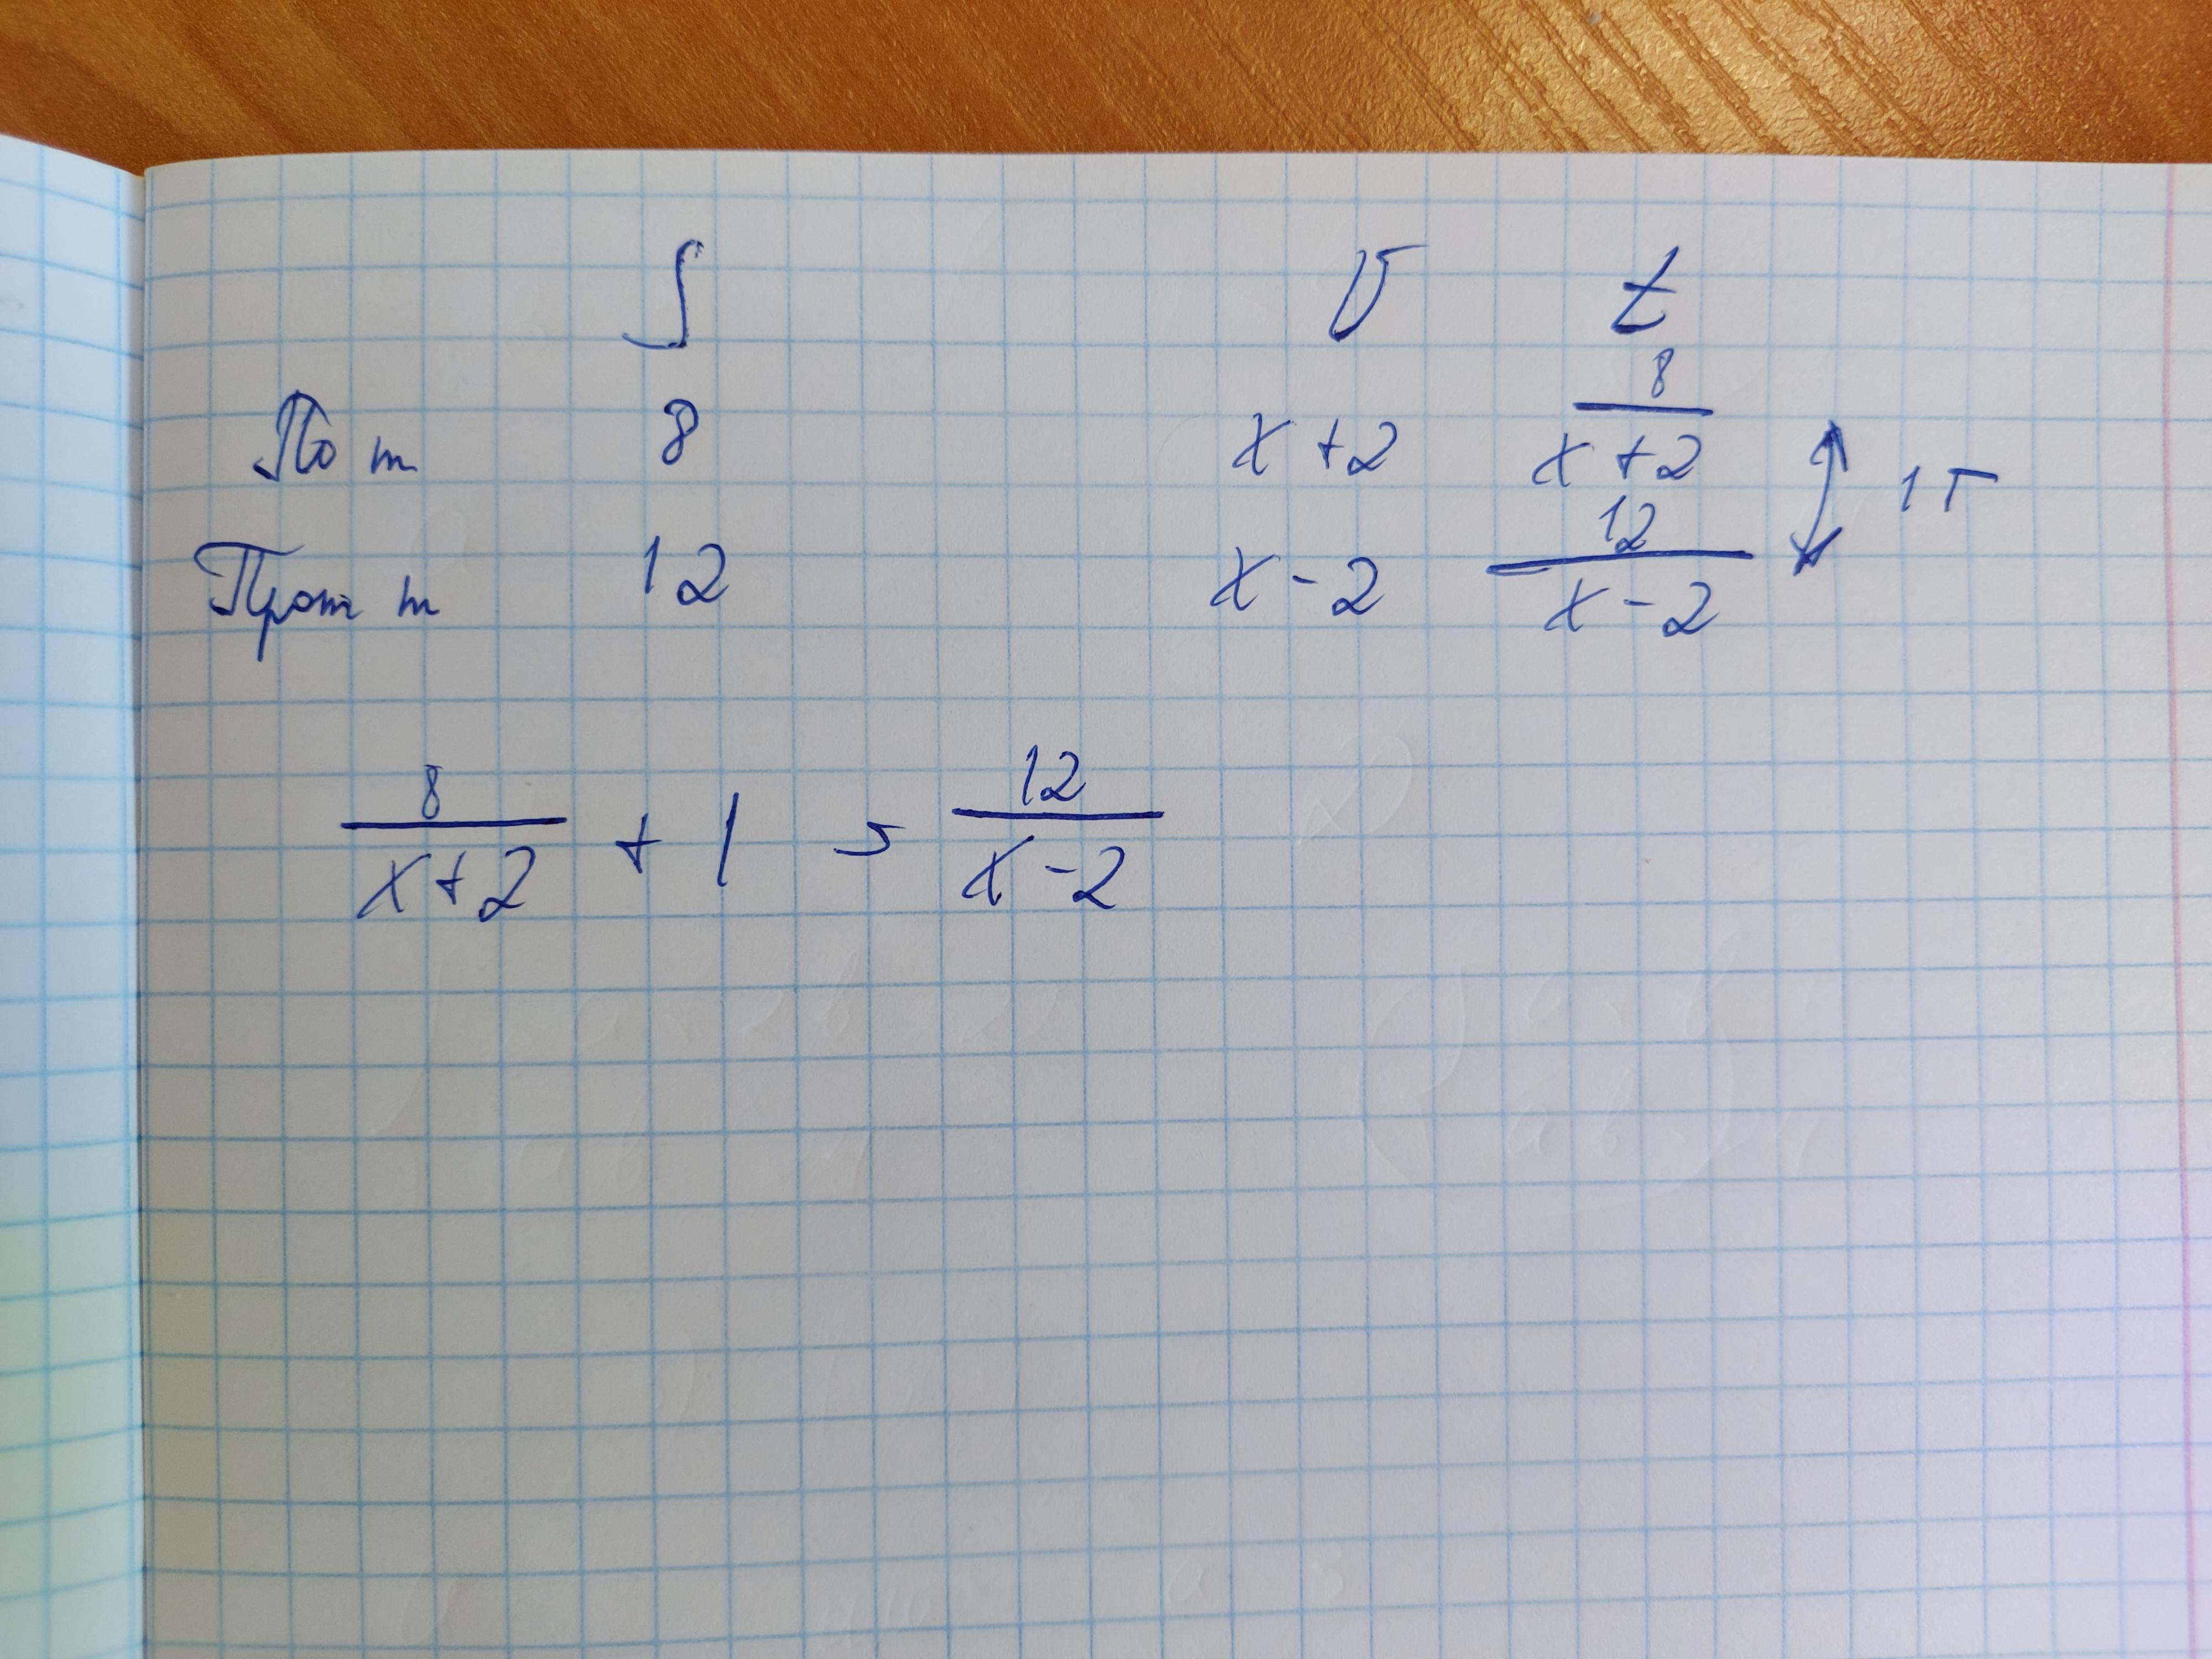 S v t
По т 8 x+2 8/(x+2)
Прот т 12 x-2 12/(x-2) 1
8/(x+2) + 1 = 12/(x-2)